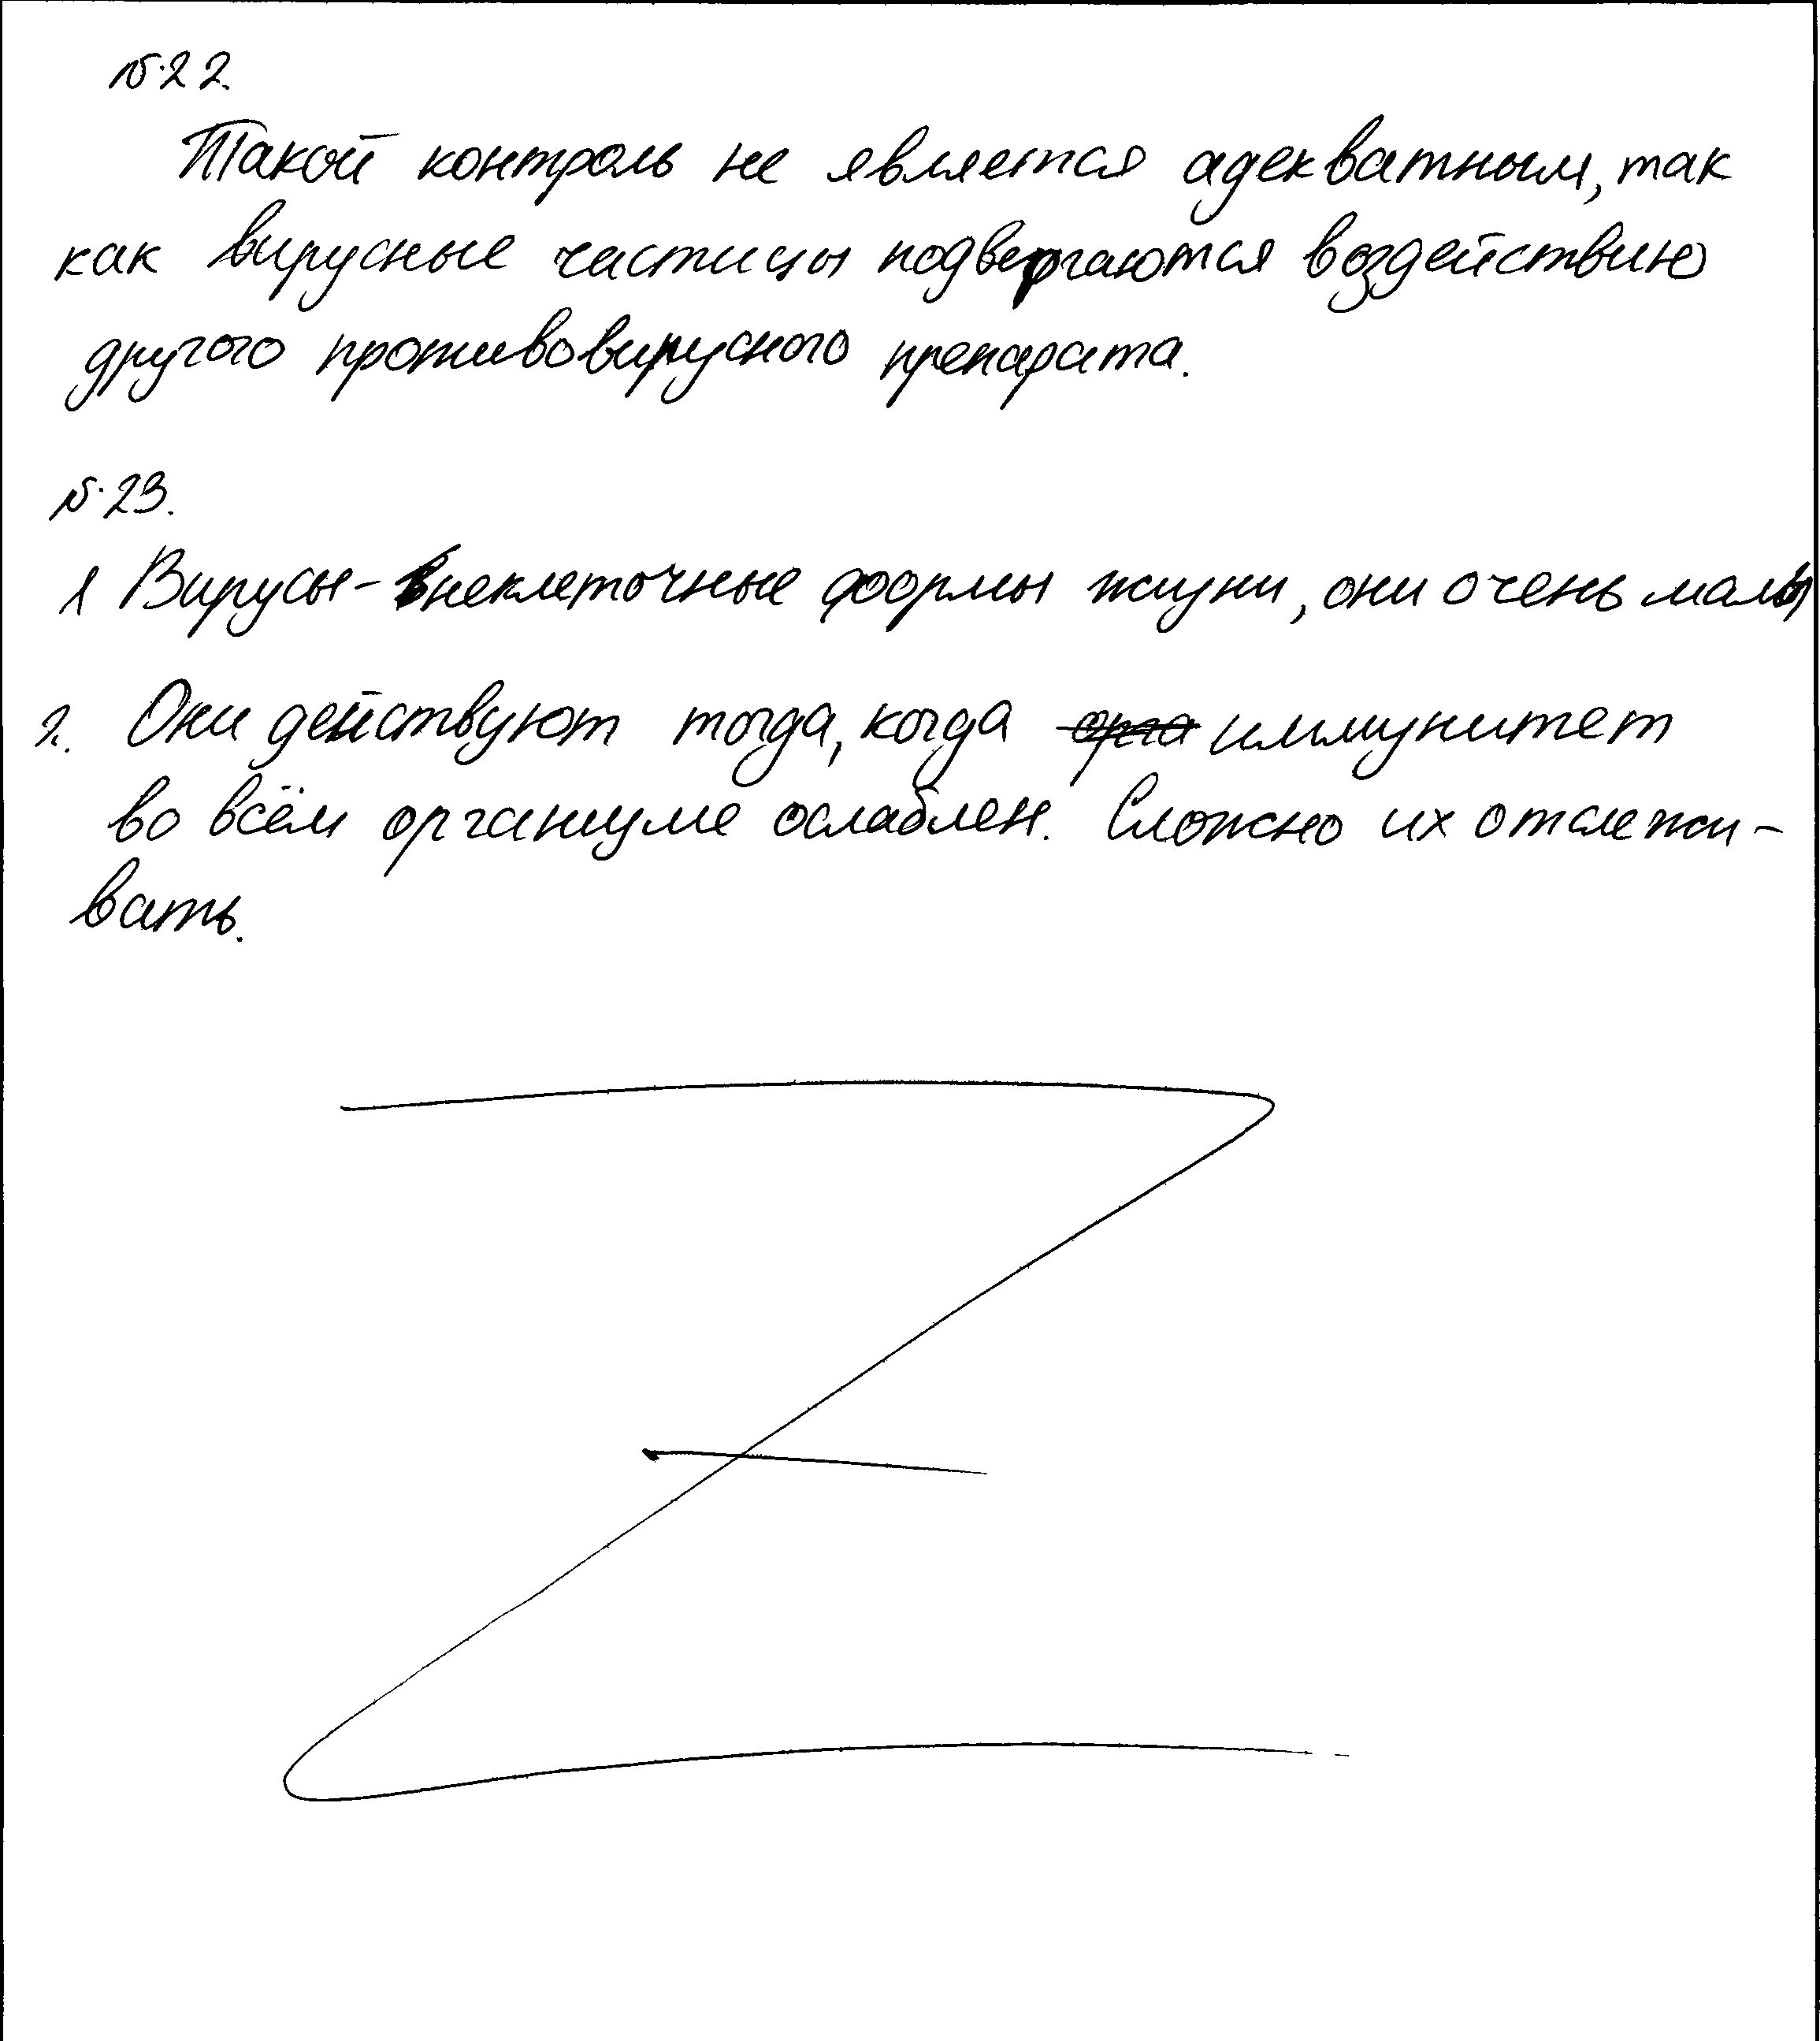 №22.
Такой контроль не является адекватным, так
как вирусные частицы подвергаются воздействию
другого противовирусного препарата.
№23.
1 Вирусы - внеклеточные формы жизни, они очень малы
2. Они действуют тогда, когда орга иммунитет
во всём организме ослаблен. Сложно их отслежи-
вать.